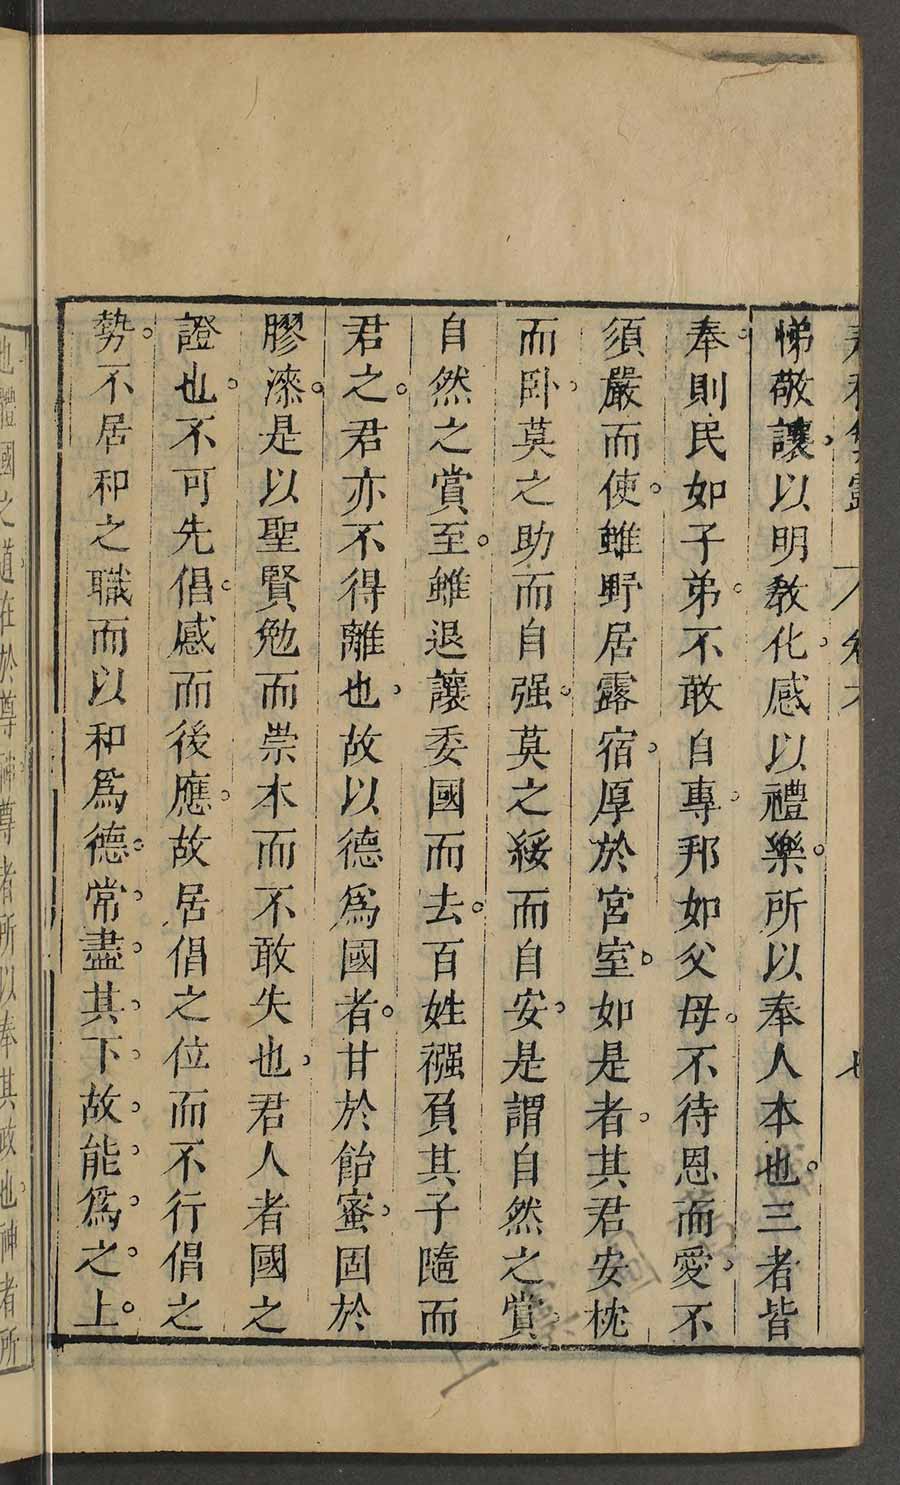 悌敬讓以明教化感以禮樂所以奉人本也三者皆
奉則民如子弟不敢自專邦如父母不待恩而愛不
須嚴而使雖野居露宿厚於宮室如是者其君安枕
而卧莫之助而自强莫之綏而自安是謂自然之賞
自然之賞至雖退讓委國而去百姓襁負其子隨而
君之君亦不得離也故以德爲國者甘於飴蜜固於
膠漆是以聖賢勉而崇本而不敢失也君人者國之
證也不可先倡感而後應故居倡之位而不行倡之
勢不居和之職而以和爲德常盡其下故能爲之上
也體國之道在於尊神尊者所以奉其政也神者所